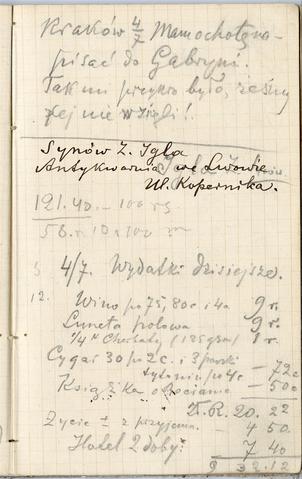 Kraków 4/7 Mamochotęno-
pisać do Gabryni.
Tak mi przykro było, żeśmy
jej nie wzięli!
Synów Z. Igla
Antykwarnia we Lwowie
Ul. Kopernika.
121.40 — 100
58. 10 100
4/7. Wydatki dzisiejsze.
12. Wino po 75, 80c i 4a 9 r.
Luneta polowa 9 r.
1/4 Herbaty (185 gram) 1 r.
Cygar 30 po 2c. i 3 paczki
tytoniu po 4c — 72c
Książka — 50c
Z.R. 20. 22
Życie ± z przyjemn. — 4 50
Hotel 2 doby: 7 40
32.12